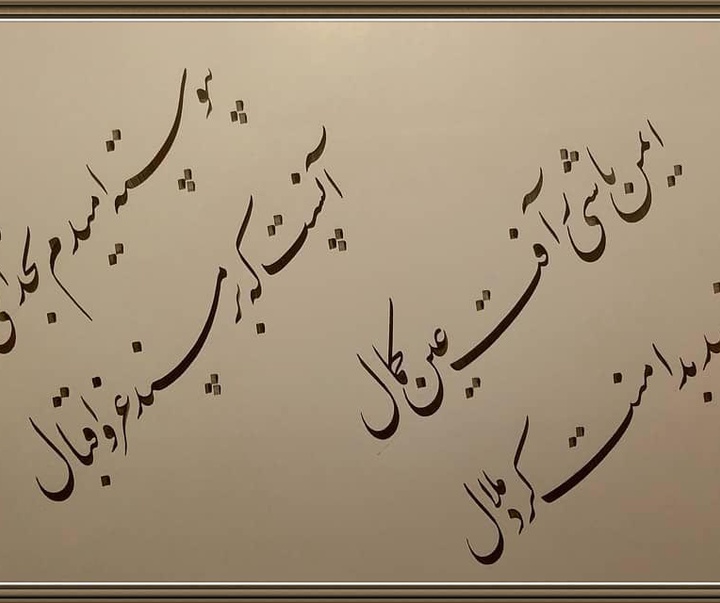 پیوسته امیدم بخدا
آنست که بر مسند عز و اقبال
ایمن باشی ز آفت عین کمال
بدامنت گرد ملال